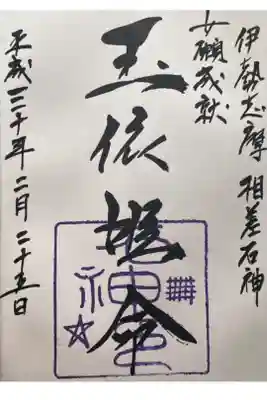 伊勢志摩 相差石神
女願成就
玉依姫命
神明
平成三十年二月二十五日